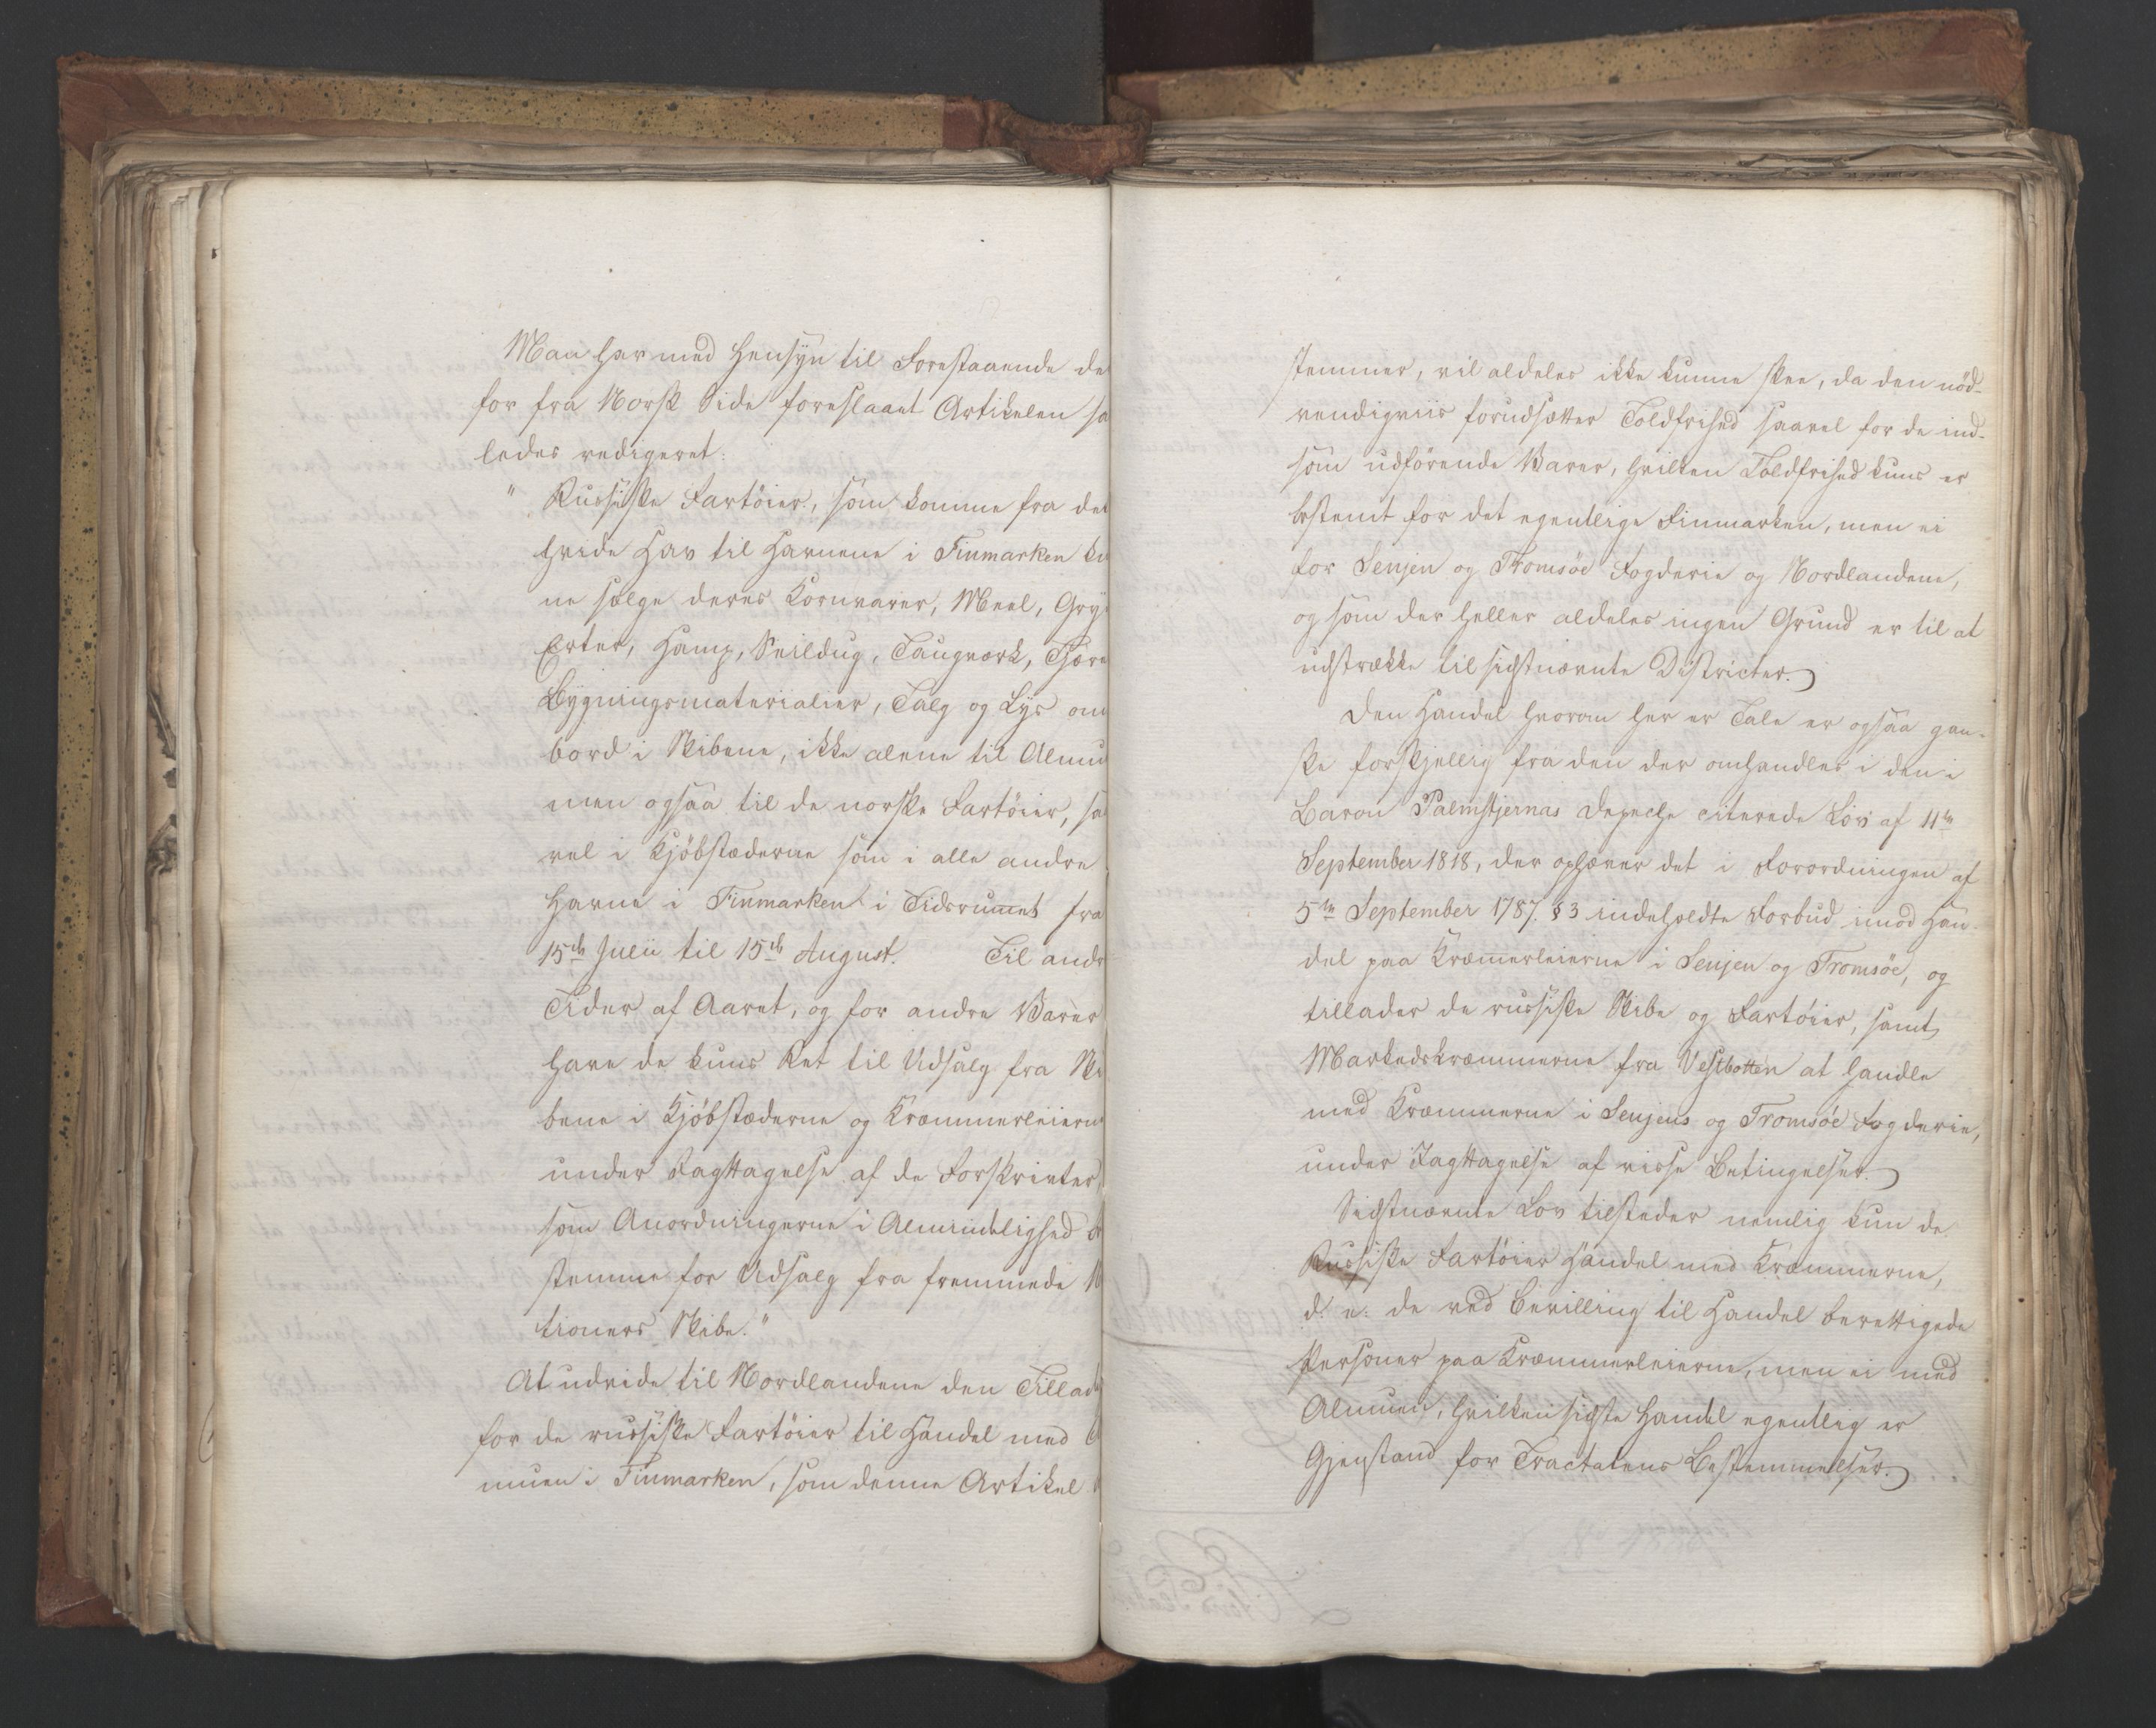 Man har med Hensÿn til Forestaaende de
for fra Norsk Side foreslaaet Artikelen sa
ledes redigeret:
" Russiske Fartöier, som komme fra det
hvide Hav til Havnene i Finmarken ku
ne sælge deres Kornvarer, Meel, Gry
Erter, Hamp, Seildug, Taugværk, Tjære
Bygningsmaterialier, Talg og Lys om
bord i Skibene, ikke alene til Almu
men ogsaa til de norske Fartöier, sa
vel i Kjöbstæderne som i alle andre
Havne i Finmarken i Tidsrummet fra
15de Julii til 15de August. Til andr
Tider af Aaret, og for andre Varer
have de kuns Ret til Udsalg fra Ski
bene i Kjöbstæderne og Kræmmerleierne
under Iagttagelse af de Forskrivter,
som Anordningerne i Almindelighed be
stemme for Udsalg fra fremmede N
tioners Skibe."
At udvide til Nordlandene den Tillad
for de russiske Fartöier til Handel med
muen i Finmarken, som denne Artikel
stemmer, vil aldeles ikke kunne skee, da den nöd-
vendigviis forudsætter Toldfrihed saavel for de ind-
som udförende Varer, hvilken Toldfrihed kuns er
bestemt for det egentlige Finmarken, men ei
for Senjen og Tromsöe Fogderie og Nordlandene,
og som der heller aldeles ingen Grund er til at
udstrække til sidstnævnte Districter.
Den Handel hvorom her er Tale er ogsaa gan-
ske forskjellig fra den der omhandles i den i
Baron Palmstjernas Depeche citerede Lov af 11te
September 1818, der ophæver det i Forordningen af
5te September 1787. § 3 indeholdte Forbud imod Han-
del paa Kræmmerleierne i Senjen og Tromsöe, og
tillader de russiske Skibe og Fartöier, samt
Markedskræmmerne fra Vestbotten at handle
med Kræmmerne i Senjens og Tromsöe Fogderie,
under Iagttagelse af visse Betingelser.
Sidstnævnte Lov tilsteder nemlig kun de
Russiske Fartöier Handel med Kræmmerne,
d. e. de ved Bevilling til Handel berettigede
Personer paa Kræmmerleierne, men ei med
Almuen, hvilken sidste Handel egentlig er
Gjenstand for Tractatens Bestemmelser.